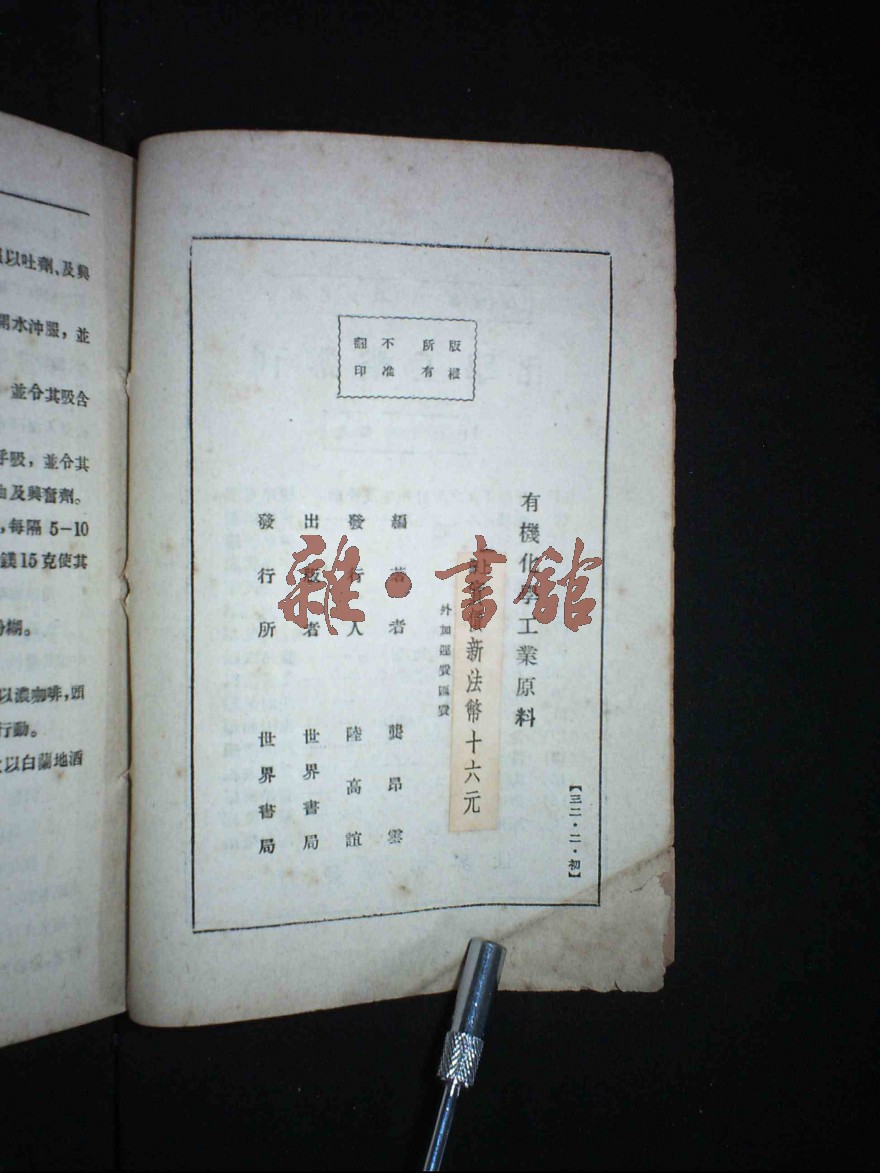 以吐劑、及興
開水沖服，並
並令其吸含
呼吸，並令其
及興奮劑。
，每隔 5—10
鎂15克使其
糊。
以濃咖啡，頭
行動。
以白蘭地酒
版權
所有
不准
翻印
【三二·二·初】
有機化學工業原料
價新法幣十六元
外加運費匯費
編著者 龔昂雲
發行人 陸高誼
出版者 世界書局
發行所 世界書局
雜·書館